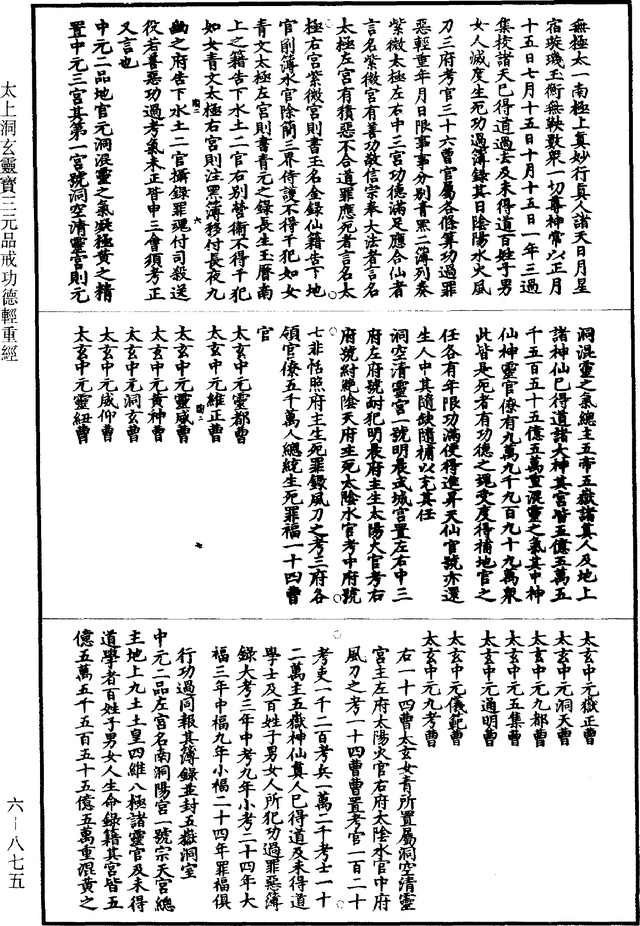 無極太一南極上真妙行真人諸天日月星
宿璇璣玉衡無鞅數衆一切尊神常以正月
十五日七月十五日十月十五日一年三過
集校諸天已得道過去及未得道百姓子男
女人滅度生死功過簿錄其日陰陽水火風
刀三府考官三十六曹官屬各條算功過罪
惡輕重年月日限事事分別青黑二簿列奏
紫微太極左右中三宮功德滿足應合仙者
言名紫微宮有善功敬信宗奉大法者言名
太極左宮有積惡不合道罪應死者言名太
極右宮紫微宮則書玉名金錄仙籍告下地
官削簿水官除簡三界侍護不得干犯如女
青文太極左宮則書青元之錄長生玉曆南
上之籍告下水土二官右別營衛不得干犯
如女青文太極右宮則注黑簿移付長夜九
幽之府告下水土二官攝錄罪魂付司殺送
役若善惡功過考氣未正皆申三會須考正
又言也
中元二品地官元洞混靈之氣凝極黃之精
置中元三宮其第一宮號洞空清靈宮則元
洞混靈之氣總主五帝五嶽諸真人及地上
諸神仙已得道諸大神其宮皆五億五萬五
千五百五十五億五萬重混靈之氣其中神
仙神靈官僚有九萬九千九百九十九萬衆
此皆是死者有功德之魂受度得補地官之
任各有年限功滿便得進昇天仙官號亦還
生人中其隨缺隨補以充其任
洞空清靈宮一號明晨武城宮置左右中三
府左府號耐犯明晨府主生太陽火官考右
府號紂絕陰天府主死太陰水官考中府號
七非恬照府主生死罪錄風刀之考三府各
領官僚五千萬人總統生死罪福一十四曹
官
太玄中元靈都曹
太玄中元維正曹
太玄中元靈威曹
太玄中元黃神曹
太玄中元洞玄曹
太玄中元威仰曹
太玄中元靈紐曹
太玄中元嶽正曹
太玄中元洞天曹
太玄中元九都曹
太玄中元五集曹
太玄中元通明曹
太玄中元儀範曹
太玄中元九考曹
右一十四曹太玄女青所置屬洞空清靈
宮主左府太陽火官右府太陰水官中府
風刀之考一十四曹曹置考官一百二十
考吏一千二百考兵一萬二千考士一十
二萬主五嶽神仙真人已得道及未得道
學士及百姓子男女人所犯功過罪惡簿
錄大考三年中考九年小考二十四年大
福三年中福九年小福二十四年罪福俱
行功過同報其簿錄並封五嶽洞室
中元二品左宮名南洞陽宮一號宗天宮總
主地上九土土皇四維八極諸靈官及未得
道學者百姓子男女人生命錄籍其宮皆五
億五萬五千五百五十五億五萬重混黃之
太上洞玄靈寶三元品戒功德輕重經
六－八七五